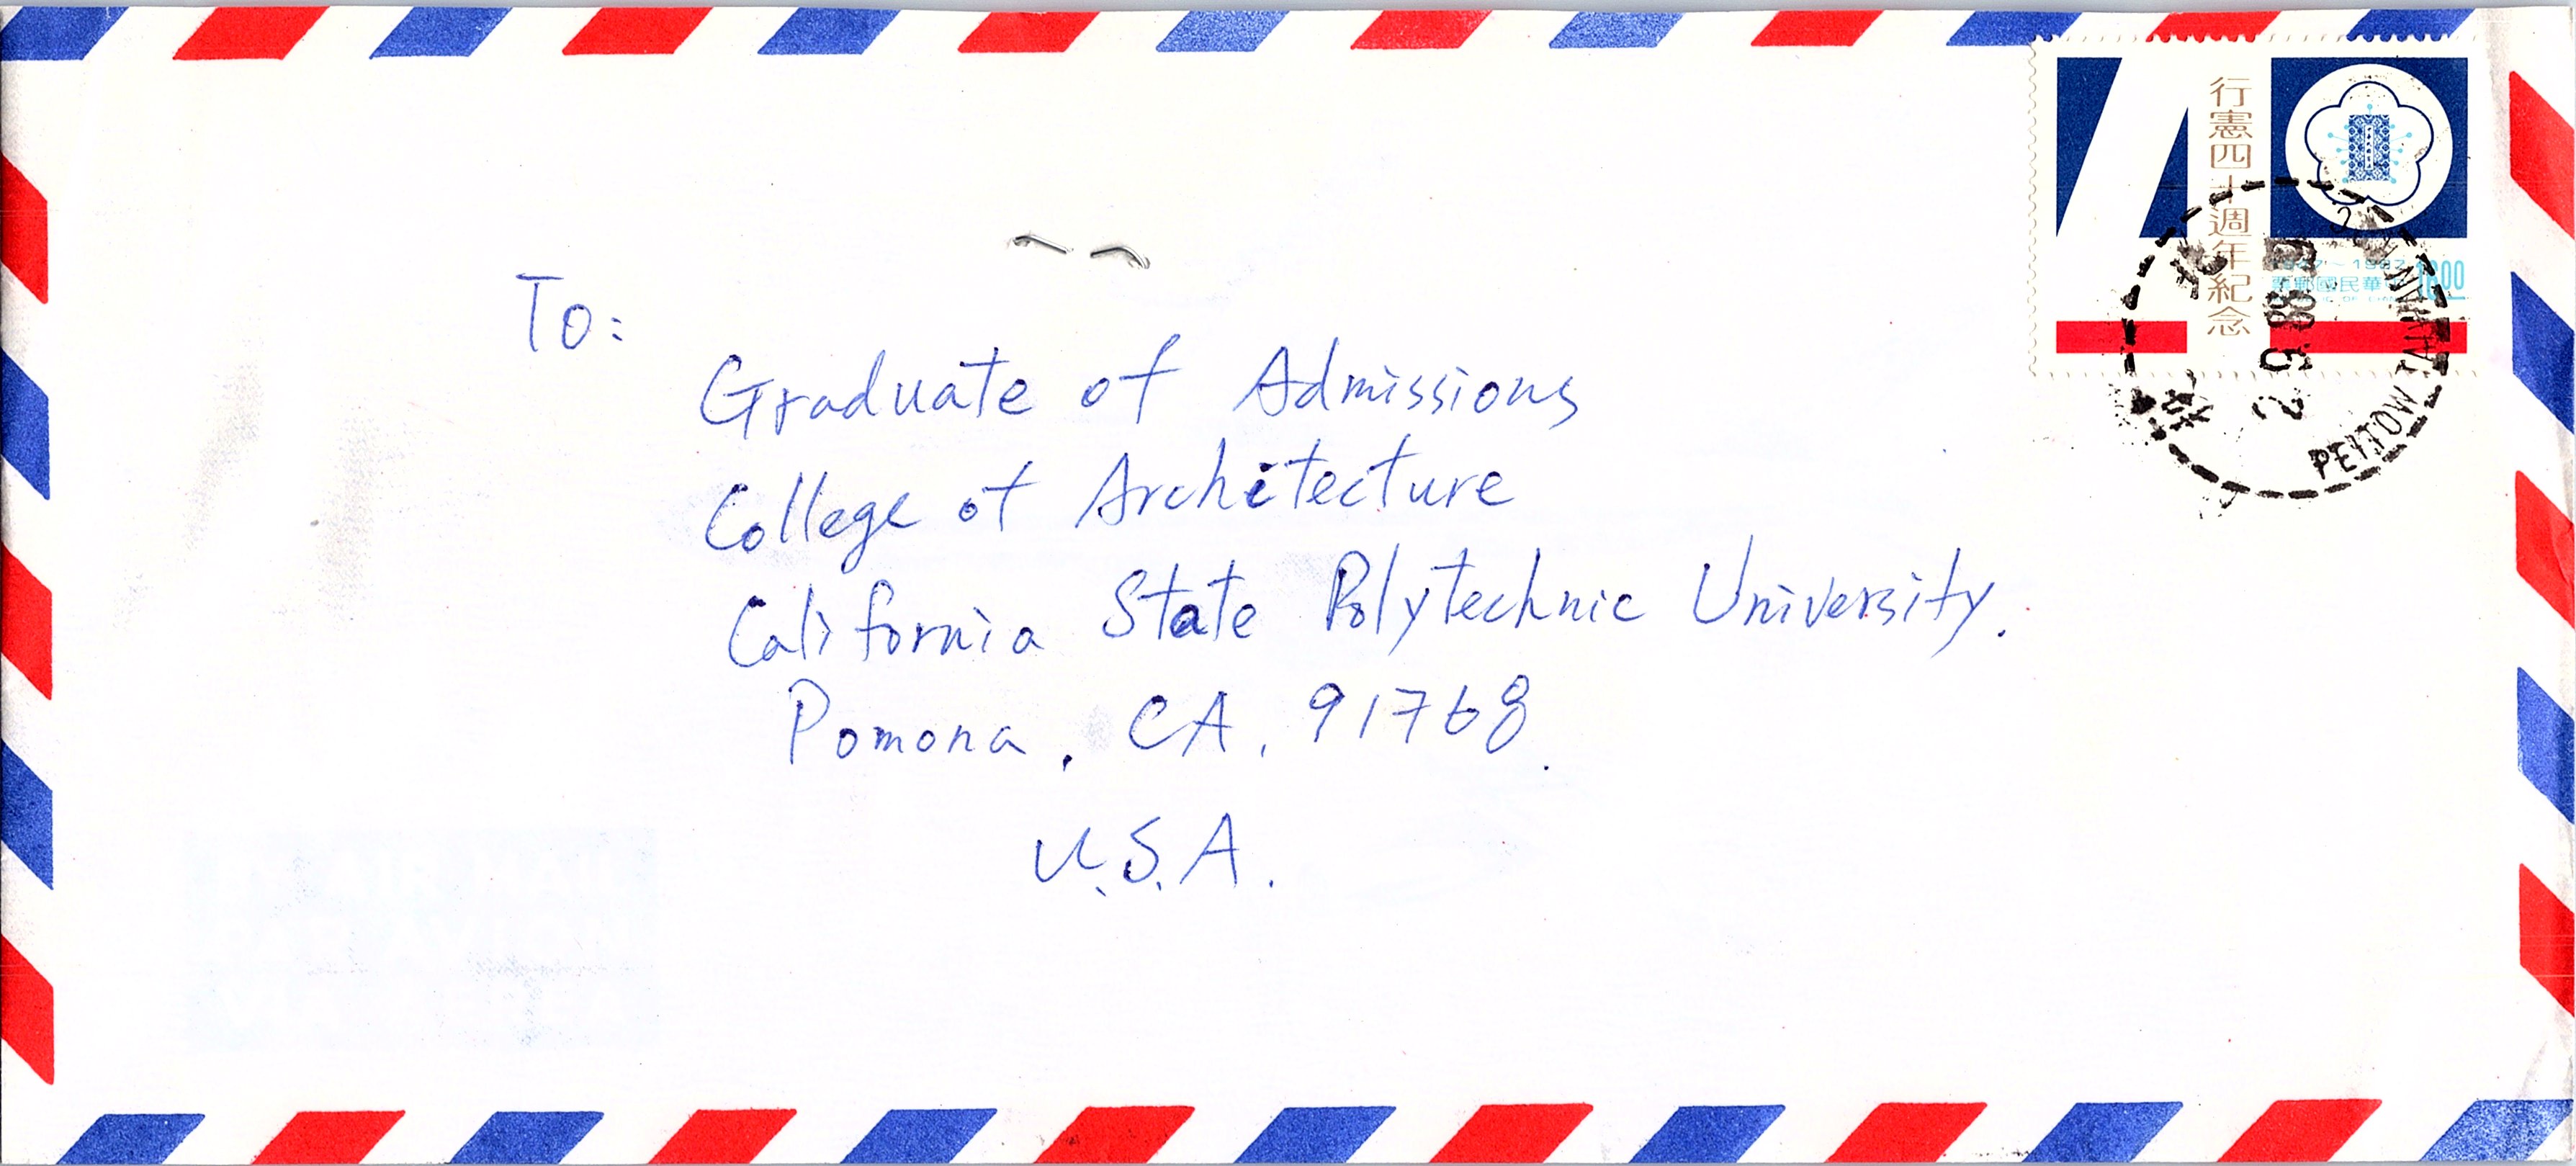 To:
Graduate of Admissions
College of Architecture
California State Polytechnic University.
Pomona, CA, 91768.
U.S.A.
行憲四十週年紀念
1947~1987
中華民國郵票
2.9.88
PEITOW TAIWAN
BY AIR MAIL
PAR AVION
VIA AEREA